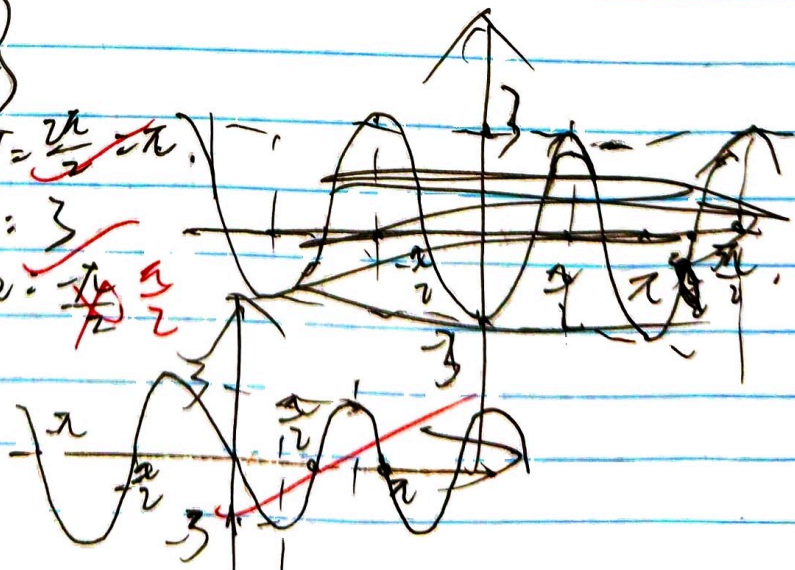 3
= 2π/2 = π
: 3
: -π/2 π/2
-π/2
π/2
π
3π/2
-3
3
π
-π/2
π/2
π
-3